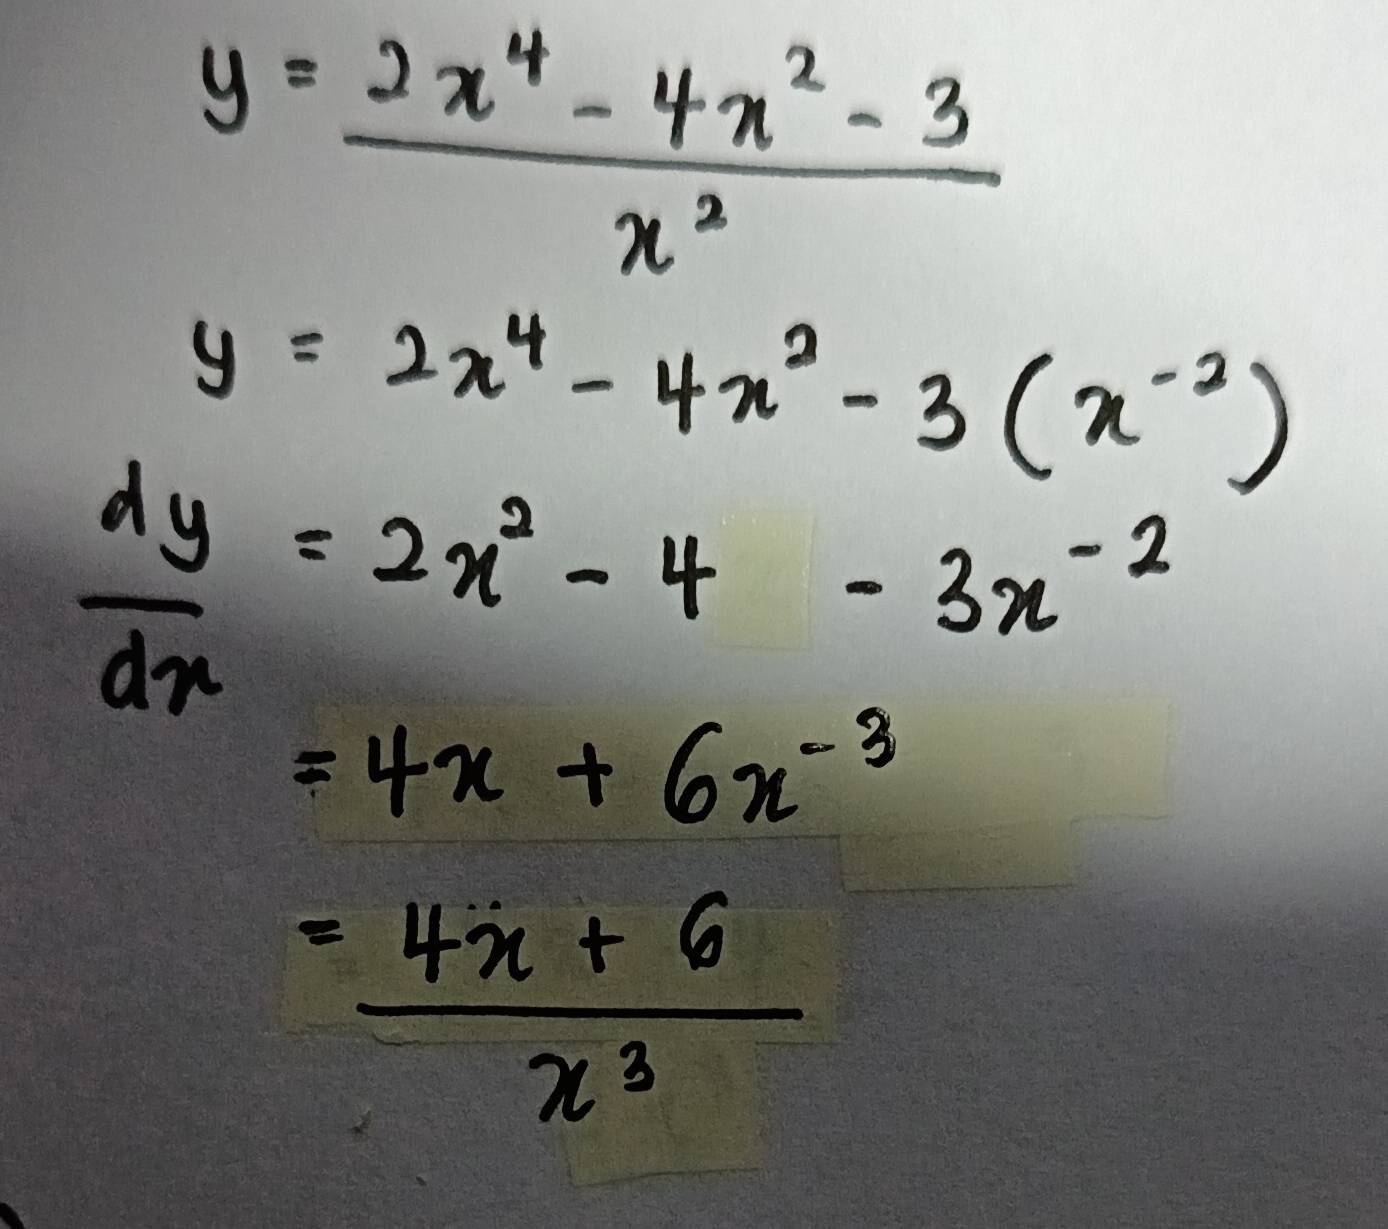 y = 2x⁴ - 4x² - 3
x²
y = 2x⁴ - 4x² - 3 (x⁻²)
dy
dx
= 2x² - 4 - 3x⁻²
= 4x + 6x⁻³
= 4x + 6
x³